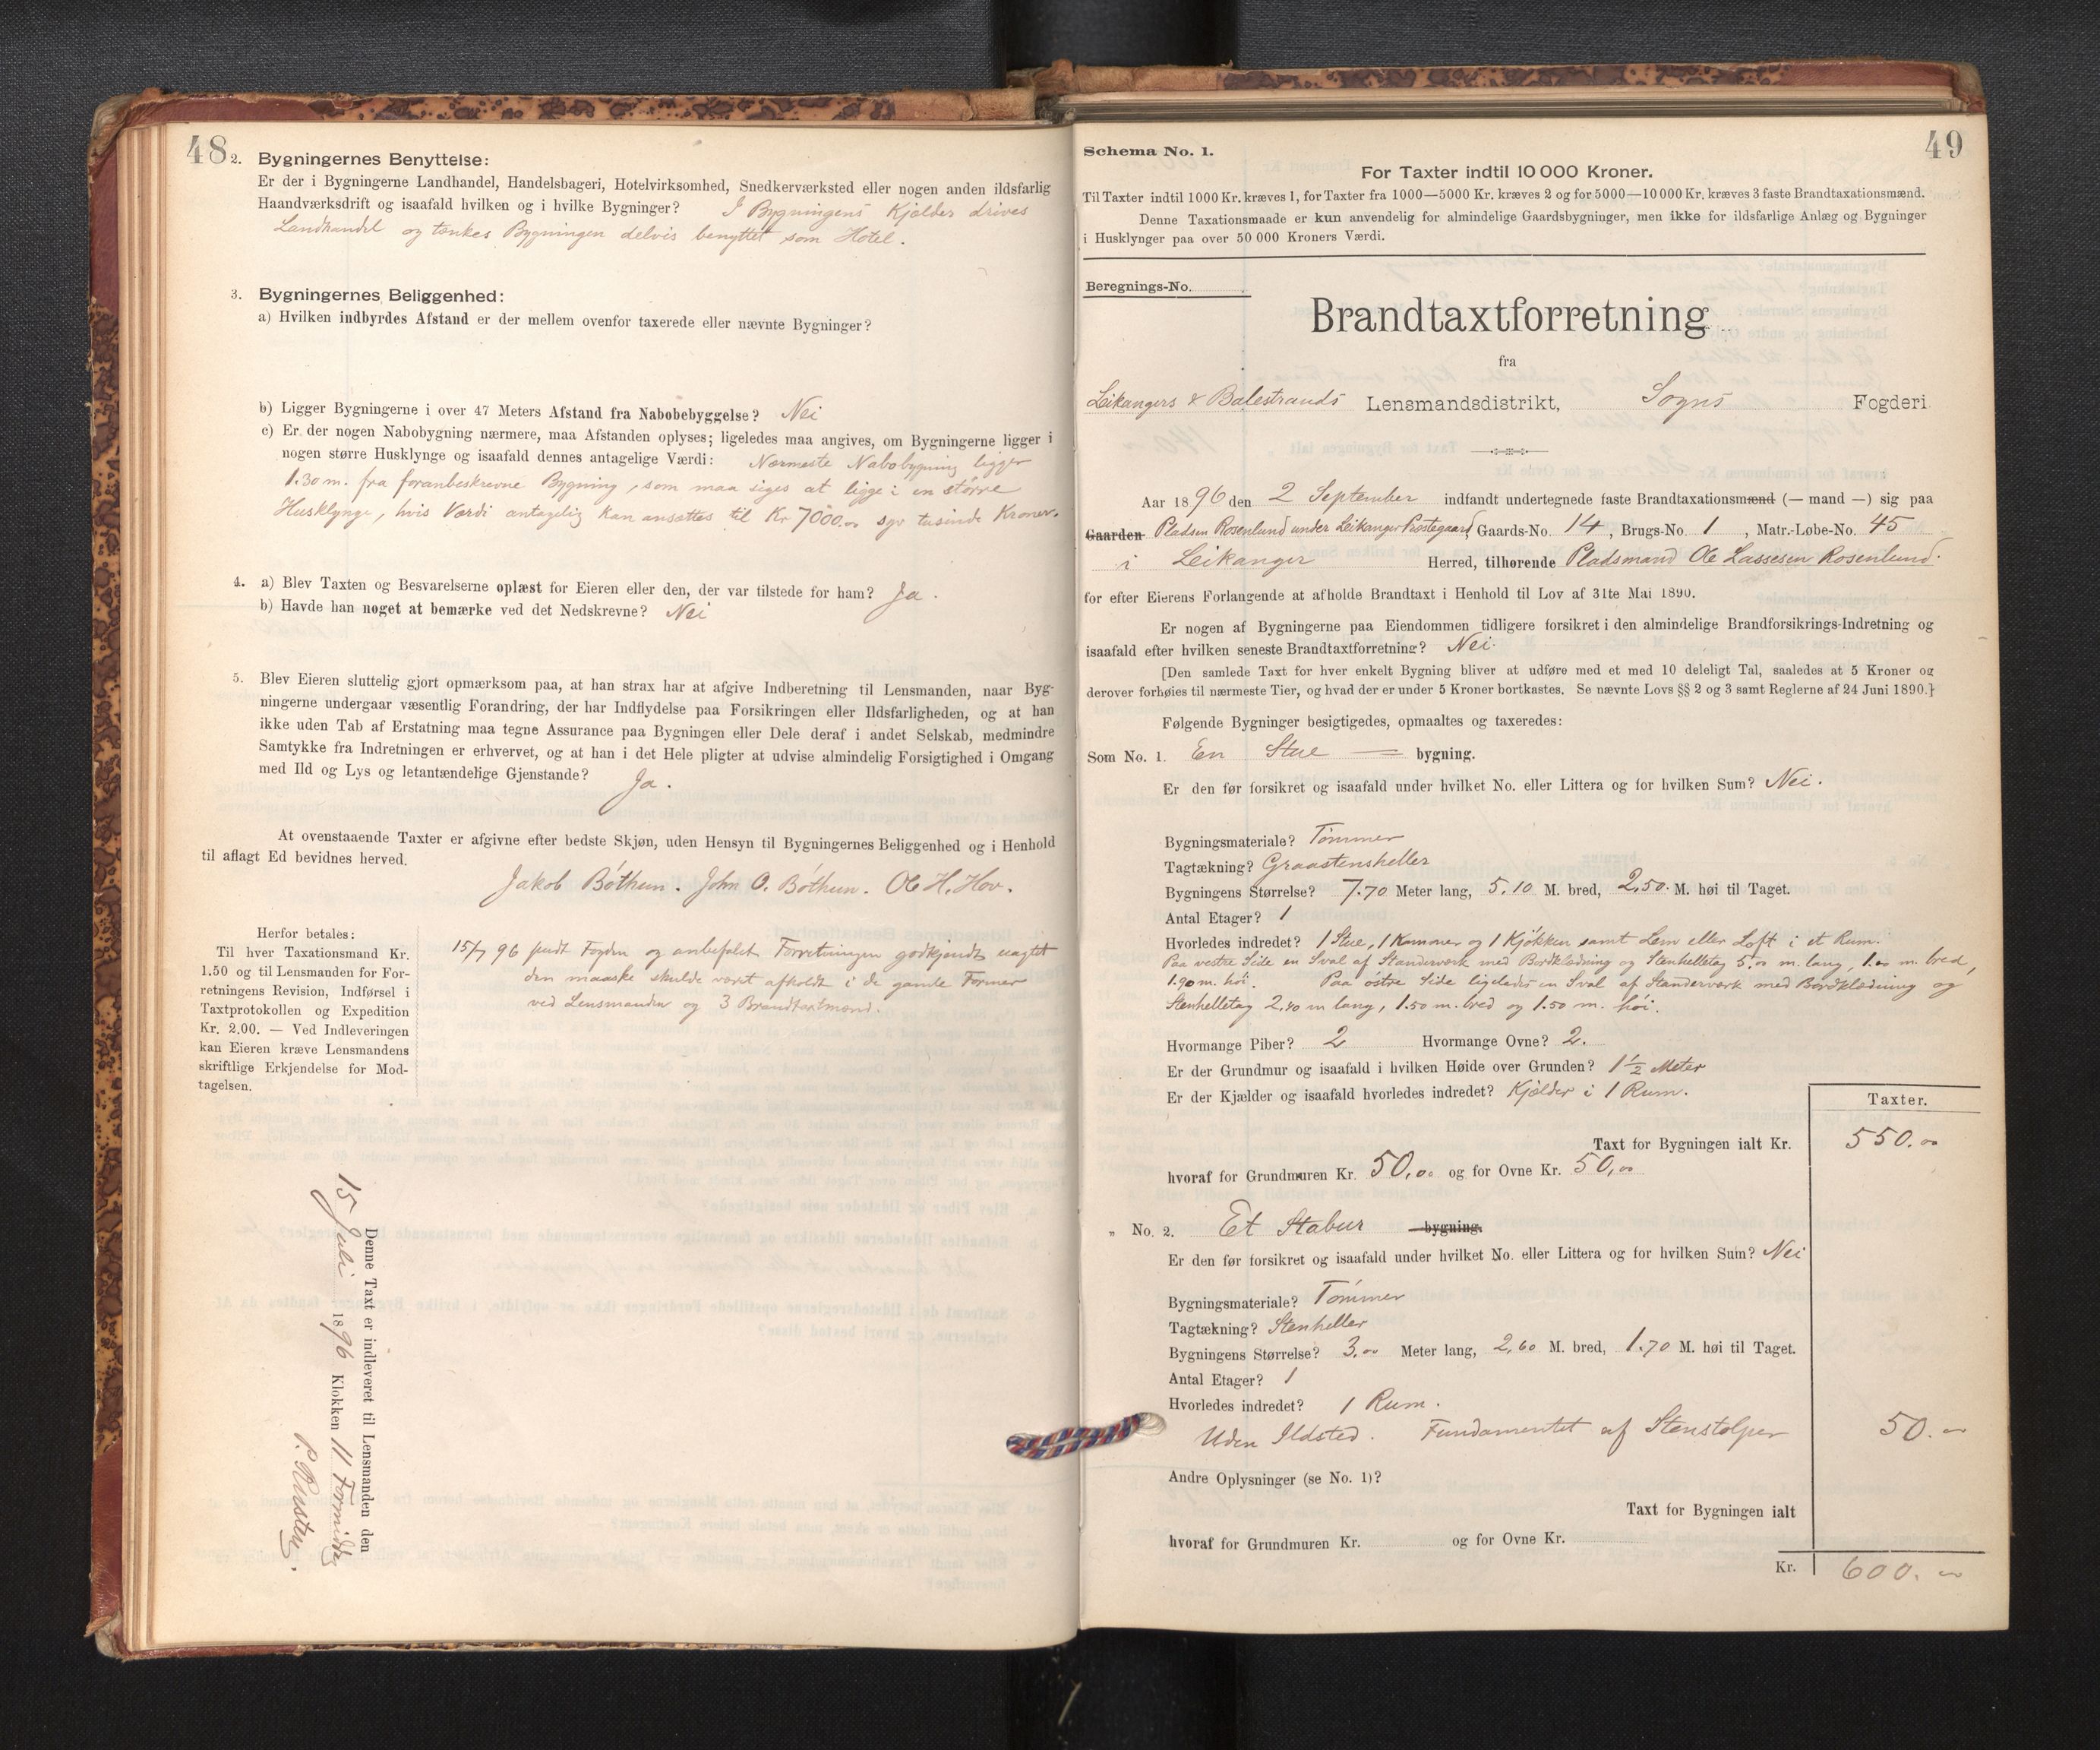 48
2. Bygningernes Benyttelse:
Er der i Bygningerne Landhandel, Handelsbageri, Hotelvirksomhed, Snedkerværksted eller nogen anden ildsfarlig
Haandværksdrift og isaafald hvilken og i hvilke Bygninger? I Bygningens Kjælder drives
Landhandel og tænkes Bygningen delvis benyttet som Hotel.
3. Bygningernes Beliggenhed:
a) Hvilken indbyrdes Afstand er der mellem ovenfor taxerede eller nævnte Bygninger?
b) Ligger Bygningerne i over 47 Meters Afstand fra Nabobebyggelse? Nei
c) Er der nogen Nabobygning nærmere, maa Afstanden oplyses; ligeledes maa angives, om Bygningerne ligger i
nogen større Husklynge og isaafald dennes antagelige Værdi: Nærmeste Nabobygning ligger
1.30 m. fra foranbeskrevne Bygning, som maa siges at ligge i en større
Husklynge, hvis Værdi antagelig kan ansættes til Kr 7000.00 syv tusinde Kroner.
4. a) Blev Taxten og Besvarelserne oplæst for Eieren eller den, der var tilstede for ham? Ja.
b) Havde han noget at bemærke ved det Nedskrevne? Nei
5. Blev Eieren sluttelig gjort opmærksom paa, at han strax har at afgive Indberetning til Lensmanden, naar Byg-
ningerne undergaar væsentlig Forandring, der har Indflydelse paa Forsikringen eller Ildsfarligheden, og at han
ikke uden Tab af Erstatning maa tegne Assurance paa Bygningen eller Dele deraf i andet Selskab, medmindre
Samtykke fra Indretningen er erhvervet, og at han i det Hele pligter at udvise almindelig Forsigtighed i Omgang
med Ild og Lys og letantændelige Gjenstande? Ja.
At ovenstaaende Taxter er afgivne efter bedste Skjøn, uden Hensyn til Bygningernes Beliggenhed og i Henhold
til aflagt Ed bevidnes herved.
Jakob Bóthun. John O. Bóthun. Ole H. Hov.
Herfor betales:
Til hver Taxationsmand Kr.
1.50 og til Lensmanden for For-
retningens Revision, Indførsel i
Taxtprotokollen og Expedition
Kr. 2.00. — Ved Indleveringen
kan Eieren kræve Lensmandens
skriftlige Erkjendelse for Mod-
tagelsen.
15/7 96 sendt Fogden og anbefalet Forretningen godkjendt uagtet
den maaske skulde været afholdt i de gamle Former
ved Lensmanden og 3 Brandtaxtmænd.
Denne Taxt er indleveret til Lensmanden den
15 Juli 1896 Klokken 11 Formiddag
49
Schema No. 1.
For Taxter indtil 10 000 Kroner.
Til Taxter indtil 1000 Kr. kræves 1, for Taxter fra 1000—5000 Kr. kræves 2 og for 5000—10 000 Kr. kræves 3 faste Brandtaxationsmænd.
Denne Taxationsmaade er kun anvendelig for almindelige Gaardsbygninger, men ikke for ildsfarlige Anlæg og Bygninger
i Husklynger paa over 50 000 Kroners Værdi.
Beregnings-No.
Brandtaxtforretning
fra
Leikangers & Balestrands Lensmandsdistrikt, Sogns Fogderi
Aar 1896 den 2 September indfandt undertegnede faste Brandtaxationsmænd (— mand —) sig paa
Gaarden Pladsen Rosenlund under Leikanger Prestegaard, Gaards-No. 14, Brugs-No. 1, Matr.-Løbe-No. 45
i Leikanger Herred, tilhørende Pladsmand Ole Lassesen Rosenlund.
for efter Eierens Forlangende at afholde Brandtaxt i Henhold til Lov af 31te Mai 1890.
Er nogen af Bygningerne paa Eiendommen tidligere forsikret i den almindelige Brandforsikrings-Indretning og
isaafald efter hvilken seneste Brandtaxtforretning? Nei.
[Den samlede Taxt for hver enkelt Bygning bliver at udføre med et med 10 deleligt Tal, saaledes at 5 Kroner og
derover forhøies til nærmeste Tier, og hvad der er under 5 Kroner bortkastes. Se nævnte Lovs §§ 2 og 3 samt Reglerne af 24 Juni 1890.]
Følgende Bygninger besigtigedes, opmaaltes og taxeredes:
Som No. 1. En Stue — bygning.
Er den før forsikret og isaafald under hvilket No. eller Littera og for hvilken Sum? Nei.
Bygningsmateriale? Tömmer
Tagtækning? Graastensheller
Bygningens Størrelse? 7.70 Meter lang, 5.10 M. bred, 2,50. M. høi til Taget.
Antal Etager? 1
Hvorledes indredet? 1 Stue, 1 Kammer og 1 Kjökken samt Lem eller Loft i et Rum.
Paa vestre Side en Sval af Standerværk med Bordklædning og Stenhelletag 5.00 m. lang, 1.00 m. bred,
1.90 m. høi. Paa östre Side ligeledes en Sval af Standerværk med Bordklædning og
Stenhelletag 2.40 m lang, 1.50 m. bred og 1.50 m. høi.
Hvormange Piber? 2 Hvormange Ovne? 2.
Er der Grundmur og isaafald i hvilken Høide over Grunden? 1½ Meter
Er der Kjælder og isaafald hvorledes indredet? Kjælder i 1 Rum.
Taxter.
Taxt for Bygningen ialt Kr. 550.00
hvoraf for Grundmuren Kr. 50,00 og for Ovne Kr. 50,00
„ No. 2. Et Stabur bygning.
Er den før forsikret og isaafald under hvilket No. eller Littera og for hvilken Sum? Nei
Bygningsmateriale? Tömmer
Tagtækning? Stenheller
Bygningens Størrelse? 3.00 Meter lang, 2,60 M. bred, 1.70 M. høi til Taget.
Antal Etager? 1
Hvorledes indredet? 1 Rum.
Uden Ildsted. Fundamentet af Stenstolper 50.00
Andre Oplysninger (se No. 1)?
Taxt for Bygningen ialt
hvoraf for Grundmuren Kr. og for Ovne Kr.
Kr. 600.00